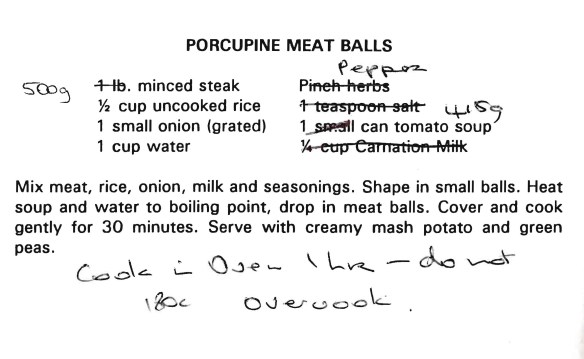 PORCUPINE MEAT BALLS
Pepper
500g 1 lb. minced steak Pinch herbs
½ cup uncooked rice 1 teaspoon salt 415g
1 small onion (grated) 1 small can tomato soup
1 cup water ¼ cup Carnation Milk
Mix meat, rice, onion, milk and seasonings. Shape in small balls. Heat
soup and water to boiling point, drop in meat balls. Cover and cook
gently for 30 minutes. Serve with creamy mash potato and green
peas.
Cook in Oven 1 hr – do not
180c overcook.